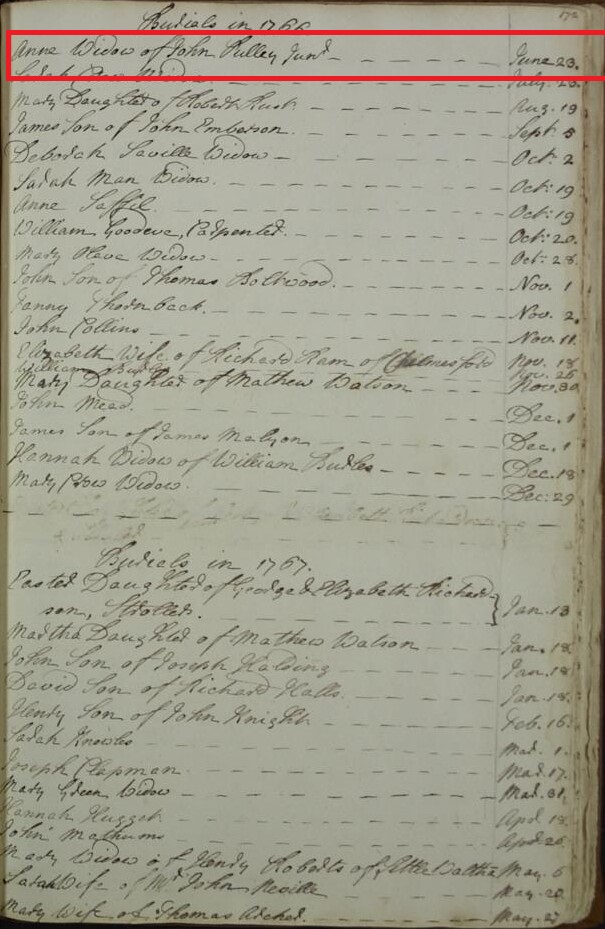 172
Burials in 1766
Anne Widow of John Pulley Junr. June 23.
Sarah Widow July 26
Mary Daughter of Robert Rush Aug. 19
James Son of John Emberson. Sept 5
Deborah Saville Widow Oct. 2
Sarah Man Widow. Oct: 19
Anne Saffil Oct: 19
William Goodeve, Carpenter. Oct: 20.
Mary Widow Oct: 28.
John Son of Thomas Boltwood. Nov. 1
Fanny Thornback. Nov. 2.
John Collins Nov. 11.
Elizabeth Wife of Richard Ham of Chelmsford Nov. 18
William Nov. 26
Mary Daughter of Mathew Watson Nov. 30
John Mead. Dec. 1
James Son of James Malyon Dec. 1
Hannah Widow of William Burles Dec. 18
Mary Crow Widow. Dec: 29
Burials in 1767.
Easter Daughter of George & Elizabeth Richard-
son, Stroller. Jan. 13
Martha Daughter of Mathew Watson Jan. 18
John Son of Joseph Harding Jan. 18
David Son of Richard Halls. Jan. 18.
Henry Son of John Knight Feb. 16.
Sarah Knowles Mar. 1.
Joseph Clapman. Mar. 17.
Mary Green Widow Mar. 31,
Hannah Huggett April 18.
John Mathums April 26
Mary Widow of Henry Roberts of Little Waltham May. 6
Sarah Wife of Mr. John Neville May. 20
Mary Wife of Thomas Archer. May. 27